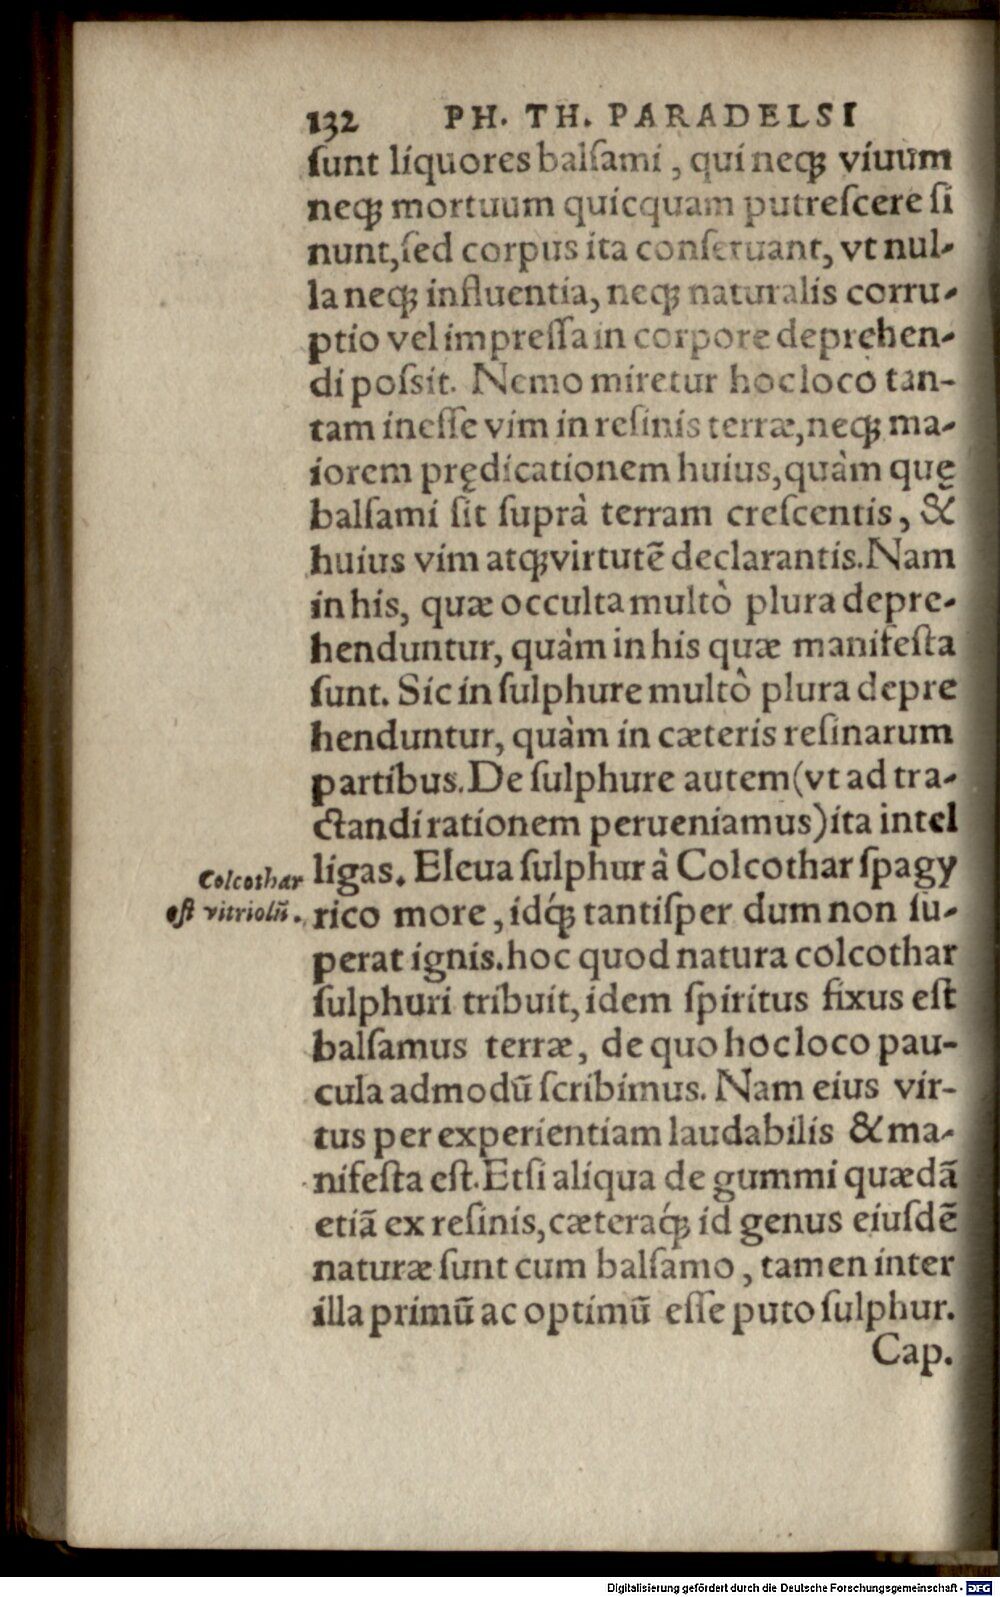 132 PH. TH. PARADELSI
ſunt liquores balſami, qui neqꝫ viuum
neqꝫ mortuum quicquam putreſcere ſi
nunt, ſed corpus ita conſeruant, vt nul-
la neqꝫ influentia, neqꝫ naturalis corru-
ptio vel impreſſa in corpore deprehen-
di poſsit. Nemo miretur hoc loco tan-
tam ineſſe vim in reſinis terræ, neqꝫ ma-
iorem prędicationem huius, quàm quę
balſami ſit ſuprà terram creſcentis, &
huius vim atqꝫ virtutē declarantis. Nam
in his, quæ occulta multò plura depre-
henduntur, quàm in his quæ manifeſta
ſunt. Sic in ſulphure multò plura depre
henduntur, quàm in cæteris reſinarum
partibus. De ſulphure autem (vt ad tra-
ctandi rationem perueniamus) ita intel
ligas. Eleua ſulphur à Colcothar ſpagy
rico more, idq́ꝫ tantiſper dum non ſu-
perat ignis. hoc quod natura colcothar
ſulphuri tribuit, idem ſpiritus fixus eſt
balſamus terræ, de quo hoc loco pau-
cula admodū ſcribimus. Nam eius vir-
tus per experientiam laudabilis & ma-
nifeſta eſt. Etſi aliqua de gummi quædā
etiā ex reſinis, cæteraq́ꝫ id genus eiuſdē
naturæ ſunt cum balſamo, tamen inter
illa primū ac optimū eſſe puto ſulphur.
Cap.
Colcothar
eſt vitriolū.
Digitalisierung gefördert durch die Deutsche Forschungsgemeinschaft - DFG